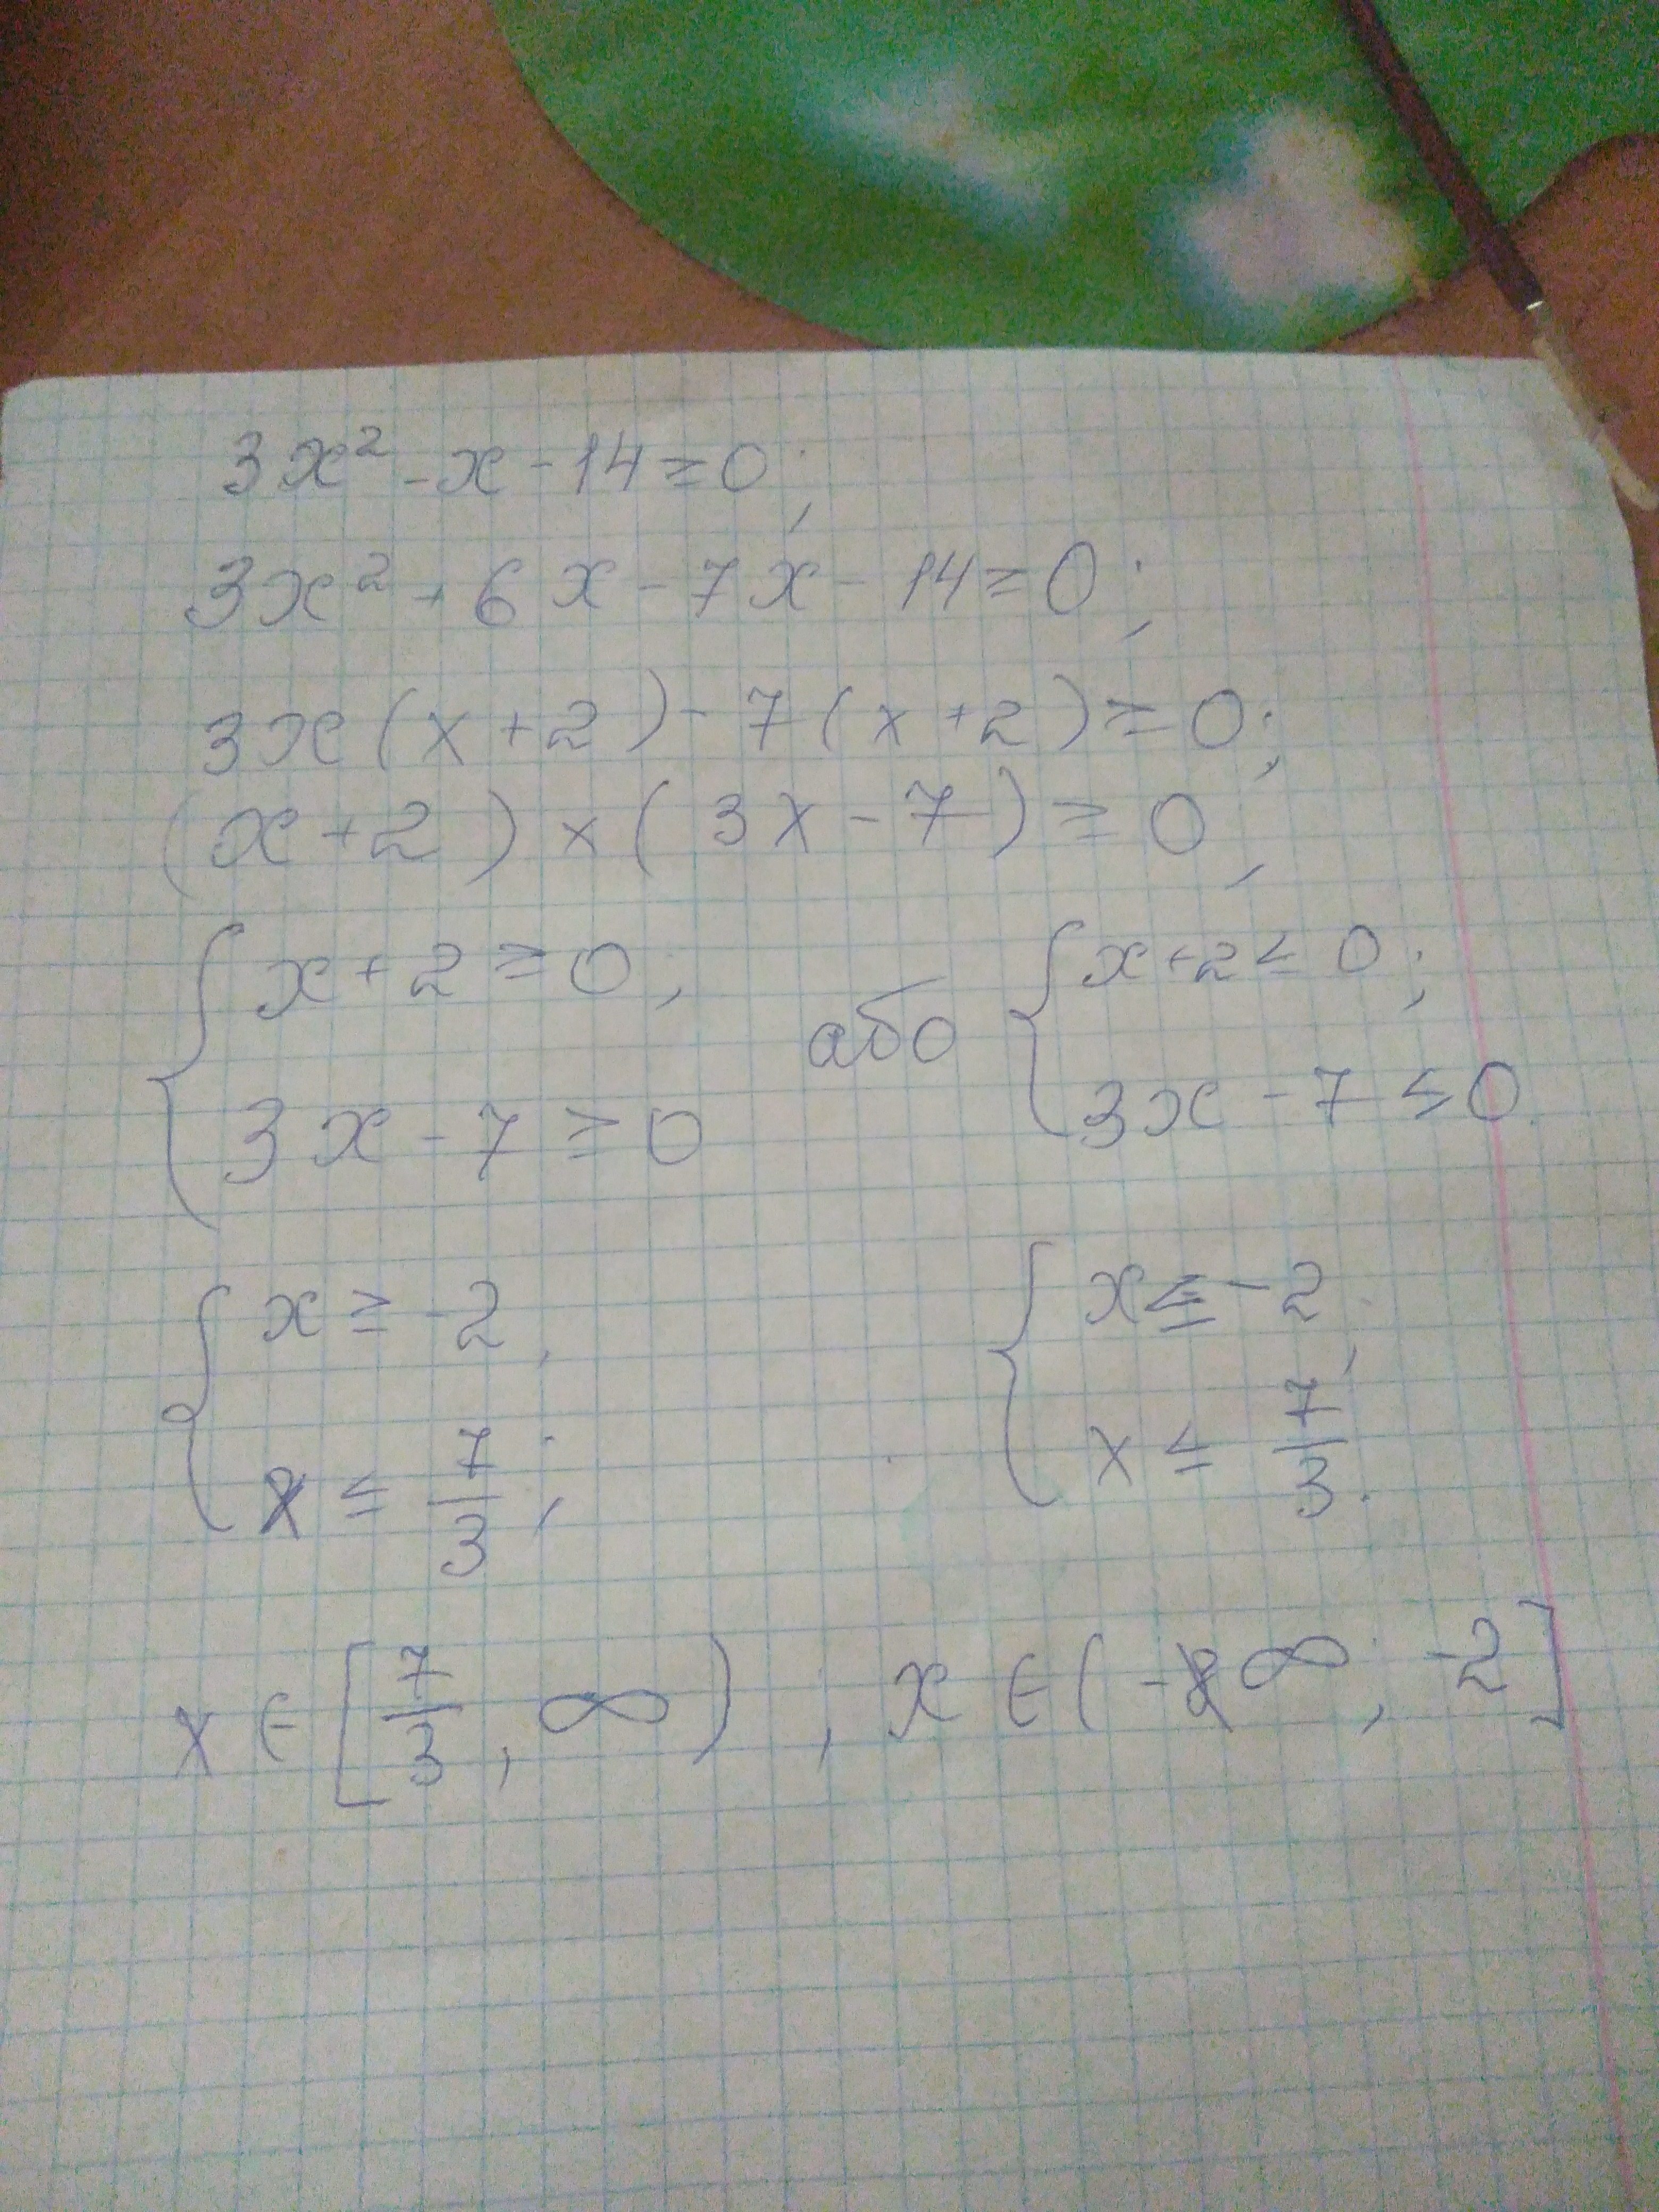 3x² - x - 14 ≥ 0;
3x² + 6x - 7x - 14 ≥ 0;
3x(x+2) - 7(x+2) ≥ 0;
(x+2) × (3x - 7) ≥ 0,
{ x+2 ≥ 0; 3x - 7 ≥ 0 або { x+2 ≤ 0; 3x - 7 ≤ 0
{ x ≥ -2, x ≤ 7/3; { x ≤ -2, x ≤ 7/3.
x ∈ [7/3, ∞), x ∈ (-∞, -2]